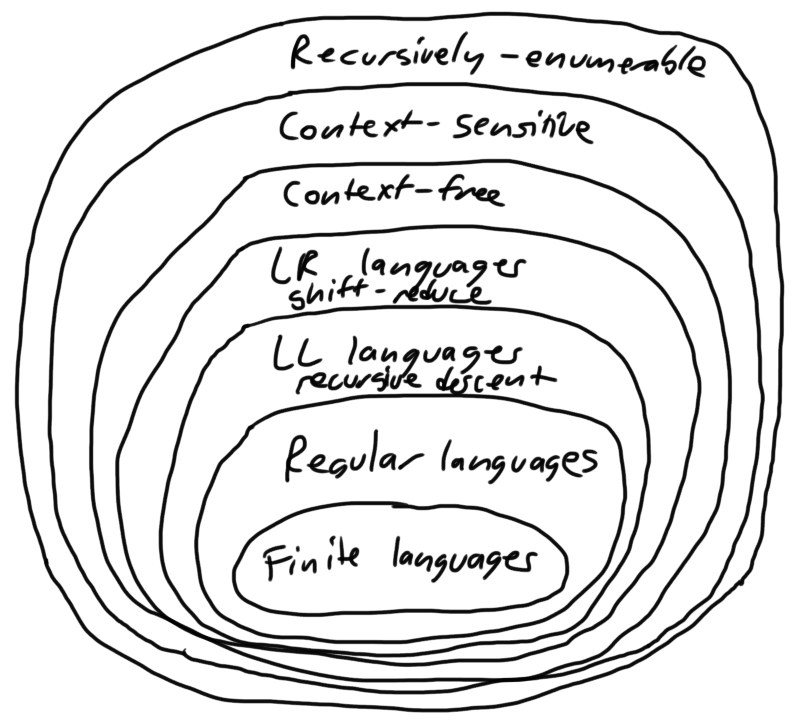 Recursively-enumerable
Context-sensitive
Context-free
LR languages
shift-reduce
LL languages
recursive descent
Regular languages
Finite languages